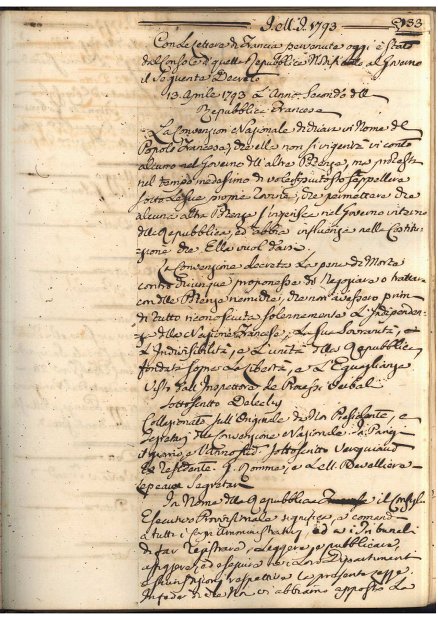 Dell D. 1793 133
Con le Lettere di Francia pervenute oggi è stato
dal Console di quella Repubblica Notificato al Governo
il seguente Decreto
13. Aprile 1793 L'Anno Secondo della
Repubblica Francese
La Convenzione Nazionale dichiara in Nome del
Popolo Francese, che ella non s'ingerirà in conto
alcuno nel Governo dell'altre Potenze, ma protesta
nel tempo medesimo di voler piuttosto seppellirsi
sotto le sue proprie rovine, che permettere che
alcuna altra Potenza s'ingerisca nel Governo interno
della Repubblica, ed abbia influenza nella Costitu-
zione che Ella vuol darsi.
La Convenzione decreta la pena di Morte
contro chiunque proponesse di Negoziare o trattare
con delle Potenze nemiche, che non avessero prima
di tutto riconosciuta solennemente L'Independen-
za della Nazione Francese, La sua Sovranità, e
L'Indivisibilità, e L'unità della Repubblica
fondata sopra La Libertà, e L'Eguaglianza
Visto dall'Inspettore de Processi Verbali
sottoscritto Delecloy
Collazionato sull'Originale da Noi Presidente, e
Segretarj della Convenzione Nazionale In Parigi
giorno, e Anno sud. sottoscritto Vergniaud
Presidente. G. Romme, e La Revelliere
Lepeaux Segretarj
In Nome della Repubblica il Consiglio
Esecutivo Provvisionale significa, e comanda
a tutti i Corpi Amministrativi, ed a i Tribunali
di far Registrare, Leggere, e pubblicare,
affiggere, ed eseguire ne i Loro Dipartimenti
e giurisdizioni respettive la presente Legge.
In fede di che Noi vi abbiamo apposto La